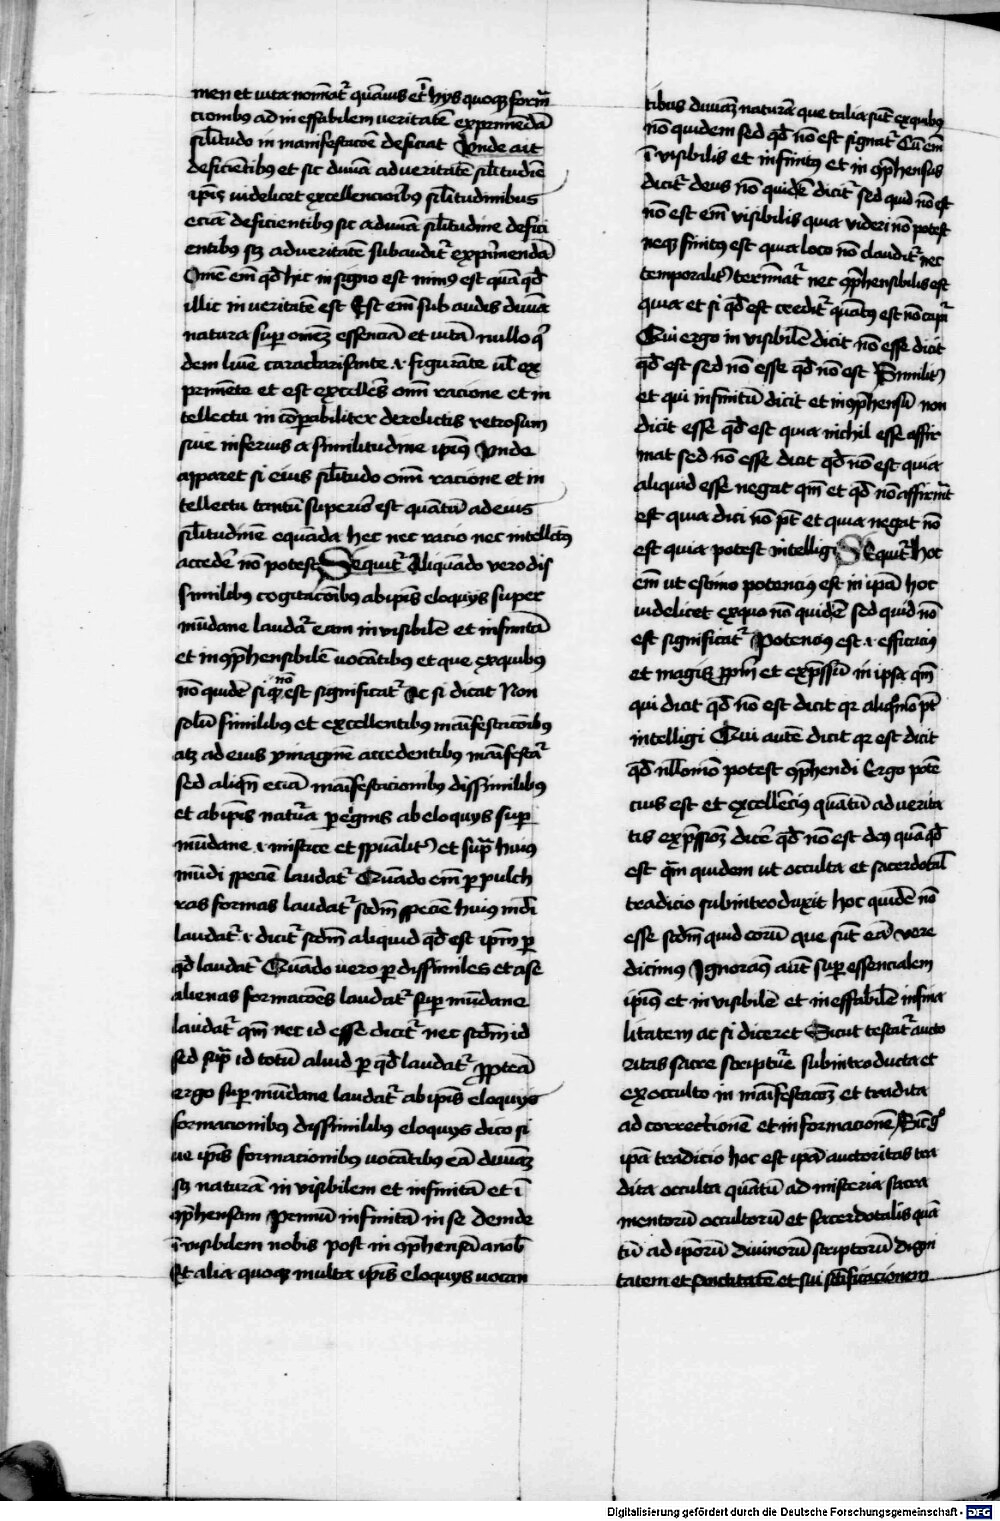 men et vita no͞iat᷑ quāuis et hys quoqꝫ form̄
cionibꝰ ad ineffabilem veritatē exprimēdā
silitudo in manifestacōe deficiat Vnde ait
deficiētibꝰ et sic diuinā ad veritatē silitudiē
ip̄is videlicet excellencioribꝰ silitudinibus
eciā deficientibꝰ sic a diuinā silitudine defici
entibꝰ scꝫ ad veritatē subaudit᷑ exprimendā
Om̄e em̄ qd̄ hic in signo est minꝰ est quā qd̄
illic in veritate est Est em̄ sub audis diuina
natura suꝑ om̄eꝫ essenciā et vitā nullo q
dem lumē caractarisante ⁊ figurāte ul̄ ex
primēte et est excellēs omī racione et in
tellectu incōpabiliter derelictis retrosum
siue inferius a similitudine ipiꝰ Vnde
apparet si eius silitudo omī racione et in
tellectu tantū superiꝰ est quātū ad eius
silitudinē equāda hec nec racio nec intellc̄tus
accedē nō potest Sequit᷑ Aliquādo vero dis
similibꝰ cogitacōibꝰ ab ip̄is eloquys super
mūdane laudat᷑ eam invisibilē et infinitā
et incp̄hensibilē uocātibꝰ et que ex quibꝰ
nō quidē si qͥ nō est significat᷑ Ac si dicat Non
solū similibꝰ et excellentibꝰ māifestacōibꝰ
atqꝫ ad eius ymaginē accedentibꝰ māifestat᷑
sed aliqn̄ eciā māifestacionibꝰ dissimilibꝰ
et ab ip̄is natura ꝑegrinis ab eloquys suꝑ
mūdane ⁊ mistice et sp̄ualit᷑ et supra huiꝰ
mūdi speciē laudat᷑ Quādo em̄ ꝑ pulch
ras formas laudat᷑ scd̄m speciē huius mūdi
laudat᷑ ⁊ dicit᷑ scd̄m aliquid qd̄ est ip̄m ꝑ
qd̄ laudat᷑ Quādo vero ꝑ dissimiles et a se
alienas formacōes laudat᷑ suꝑ mūdane
laudat᷑ qm̄ nec id esse dicit᷑ nec scd̄m id
sed supra id totū aliud ꝑ qd̄ laudat᷑ ꝓpterea
ergo suꝑ mūdane laudat᷑ ab ip̄is eloquys
formacionibꝰ dissimilibꝰ eloquys dico si
ue ip̄is formacionibꝰ uocātibꝰ eā diuinā
scꝫ naturā invisibilem et infinitā et ī
cp̄hensam Primū infinitā in se deinde
īvisibilem nobis post incp̄hensā a nob̄
Et alia quoqꝫ multa ip̄is eloquys uocan
tibus diuinā naturā que talia sūt ex quibꝰ
nō quidem sed qd̄ nō est signat᷑ Cū em̄
īvisibilis et infinitꝰ et incp̄hensus
dicit᷑ deus nō quidē dicit᷑ sed quid nō est
nō est em̄ visibilis quia videri nō potest
neqꝫ finitus est quia loco nō claudit᷑ nec
temporalit᷑ terminat᷑ nec cp̄hensibilis est
quia et si qd̄ est credit᷑ quātus est nō capit᷑
Qui ergo invisibilē dicit nō esse dicit
qd̄ est sed nō esse qd̄ nō est Similit᷑
et qui infinitū dicit et incp̄hensū non
dicit esse qd̄ est quia nichil esse affir
mat sed nō esse dicit qd̄ nō est quia
aliquid esse negat qm̄ et qd̄ nō affirmat
est quia dici nō pt̄ et quia negat nō
est quia potest intelligi Sequit᷑ hoc
em̄ ut estimo potencius est in ipā hoc
videlicet ex quo nō quidē sed quid nō
est significat᷑ Potencius est ⁊ efficacius
et magis ꝓpriū et exp̄ssiū in ipsa qm̄
qui dicit qd̄ nō est dicit qꝛ aliqͦmō pt̄
intelligi Qui autē dicit qꝛ est dicit
qd̄ nllomō potest cp̄hendi Ergo potē
cius est et excellēcius quātū ad verita
tis exp̄ssioꝫ dicē qd̄ nō est deꝰ quā qd̄
est qm̄ quidem ut occulta et sacerdotal̄
tradicio subintroduxit hoc quidē nō
esse scd̄m quid eorū que sūt eā vere
dicimꝰ Ignoramꝰ aūt suꝑ essencialem
ipiꝰ et invisibilē et ineffabilē infini
litatem ac si diceret Sicut testat᷑ aucto
ritas sacre scripture subintroducta et
ex occulto in māifestacōꝫ et tradita
ad correctionē et informacionē Sic gͦ
ipā tradicio hoc est ipā auctoritas tra
dita occulta quātū ad misteria sacra
mentorū occultorū et sacerdotalis quā
tū ad ipōrū diuinorū scriptorū digni
tatem et sanctitatē et sui sctificacionem
Digitalisierung gefördert durch die Deutsche Forschungsgemeinschaft - DFG